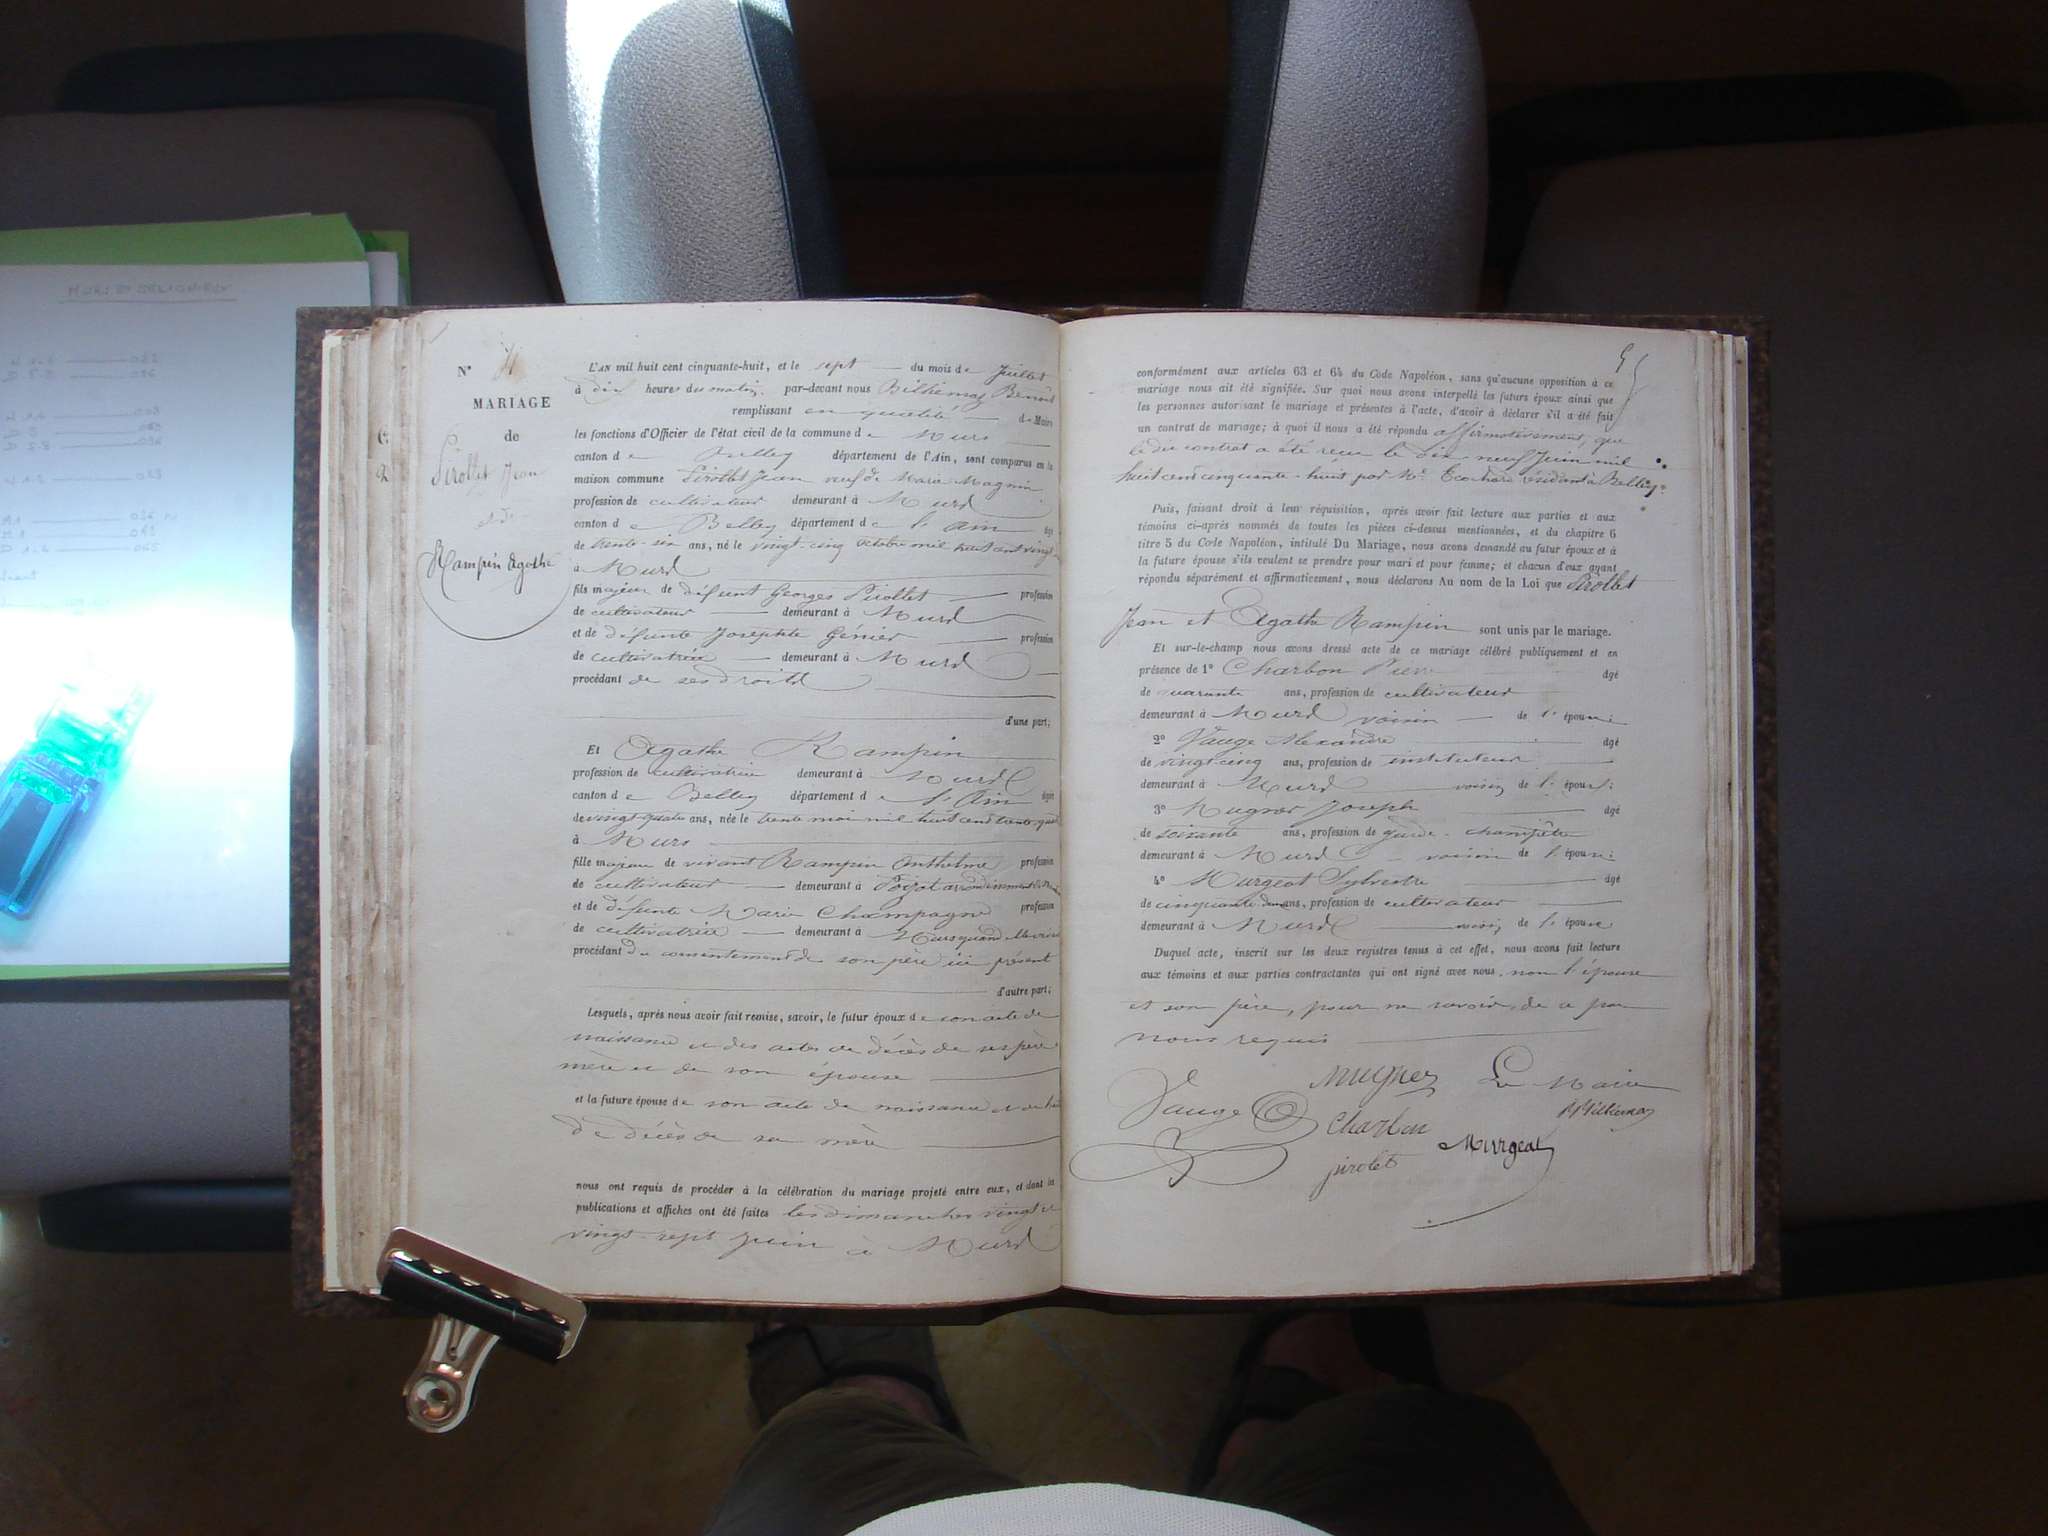 MURS ET GELIGNIEUX
N°
MARIAGE
de
Pirollet Jean
et de
Rampin Agathe
L'AN mil huit cent cinquante-huit, et le sept du mois de Juillet
à dix heures du matin, par-devant nous Billiemaz Benoit
remplissant en qualité de Maire
les fonctions d'Officier de l'état civil de la commune de Murs
canton de Belley département de l'Ain, sont comparus en la
maison commune Pirollet Jean veuf de Marie Magnin
profession de cultivateur demeurant à Murs
canton de Belley département de l'Ain âgé
de trente-six ans, né le vingt-cinq octobre mil huit cent vingt un
à Murs
fils majeur de défunt Georges Pirollet profession
de cultivateur demeurant à Murs
et de défunte Josephte Génier profession
de cultivatrice demeurant à Murs
procédant de ses droits
d'une part;
Et Agathe Rampin
profession de cultivatrice demeurant à Murs
canton de Belley département de l'Ain âgée
de vingt-quatre ans, née le trente mai mil huit cent trente quatre
à Murs
fille majeure de vivant Rampin Anthelme profession
de cultivateur demeurant à
et de défunte Marie Champagne profession
de cultivatrice demeurant à Murs quand elle vivait
procédant du consentement de son père ici présent
d'autre part;
Lesquels, après nous avoir fait remise, savoir, le futur époux de son acte de
naissance et des actes de décès de ses père
mère et de son épouse
et la future épouse de son acte de naissance et de celui
de décès de sa mère
nous ont requis de procéder à la célébration du mariage projeté entre eux, et dont les
publications et affiches ont été faites les dimanches vingt et
vingt-sept juin à Murs
conformément aux articles 63 et 64 du Code Napoléon, sans qu'aucune opposition à ce
mariage nous ait été signifiée. Sur quoi nous avons interpellé les futurs époux ainsi que
les personnes autorisant le mariage et présentes à l'acte, d'avoir à déclarer s'il a été fait
un contrat de mariage; à quoi il nous a été répondu affirmativement, que
le dit contrat a été reçu le dix neuf Juin mil
huit cent cinquante-huit par Me Ecochard résidant à Belley.
Puis, faisant droit à leur réquisition, après avoir fait lecture aux parties et aux
témoins ci-après nommés de toutes les pièces ci-dessus mentionnées, et du chapitre 6
titre 5 du Code Napoléon, intitulé Du Mariage, nous avons demandé au futur époux et à
la future épouse s'ils veulent se prendre pour mari et pour femme; et chacun d'eux ayant
répondu séparément et affirmativement, nous déclarons Au nom de la Loi que Pirollet
Jean et Agathe Rampin sont unis par le mariage.
Et sur-le-champ nous avons dressé acte de ce mariage célébré publiquement et en
présence de 1° Charbon Pierre âgé
de quarante ans, profession de cultivateur
demeurant à Murs voisin de l'épouse
2° Vauge Alexandre âgé
de vingt cinq ans, profession de instituteur
demeurant à Murs voisin de l'épouse;
3° Mugner Joseph âgé
de soixante ans, profession de garde-champêtre
demeurant à Murs voisin de l'épouse;
4° Murgeat Sylvestre âgé
de cinquante deux ans, profession de cultivateur
demeurant à Murs voisin de l'épouse
Duquel acte, inscrit sur les deux registres tenus à cet effet, nous avons fait lecture
aux témoins et aux parties contractantes qui ont signé avec nous, non l'épouse
et son père, pour ne savoir, de ce par
nous requis
Mugner Le Maire
Vauge Billiemaz
Charbon
Murgeat
pirolet